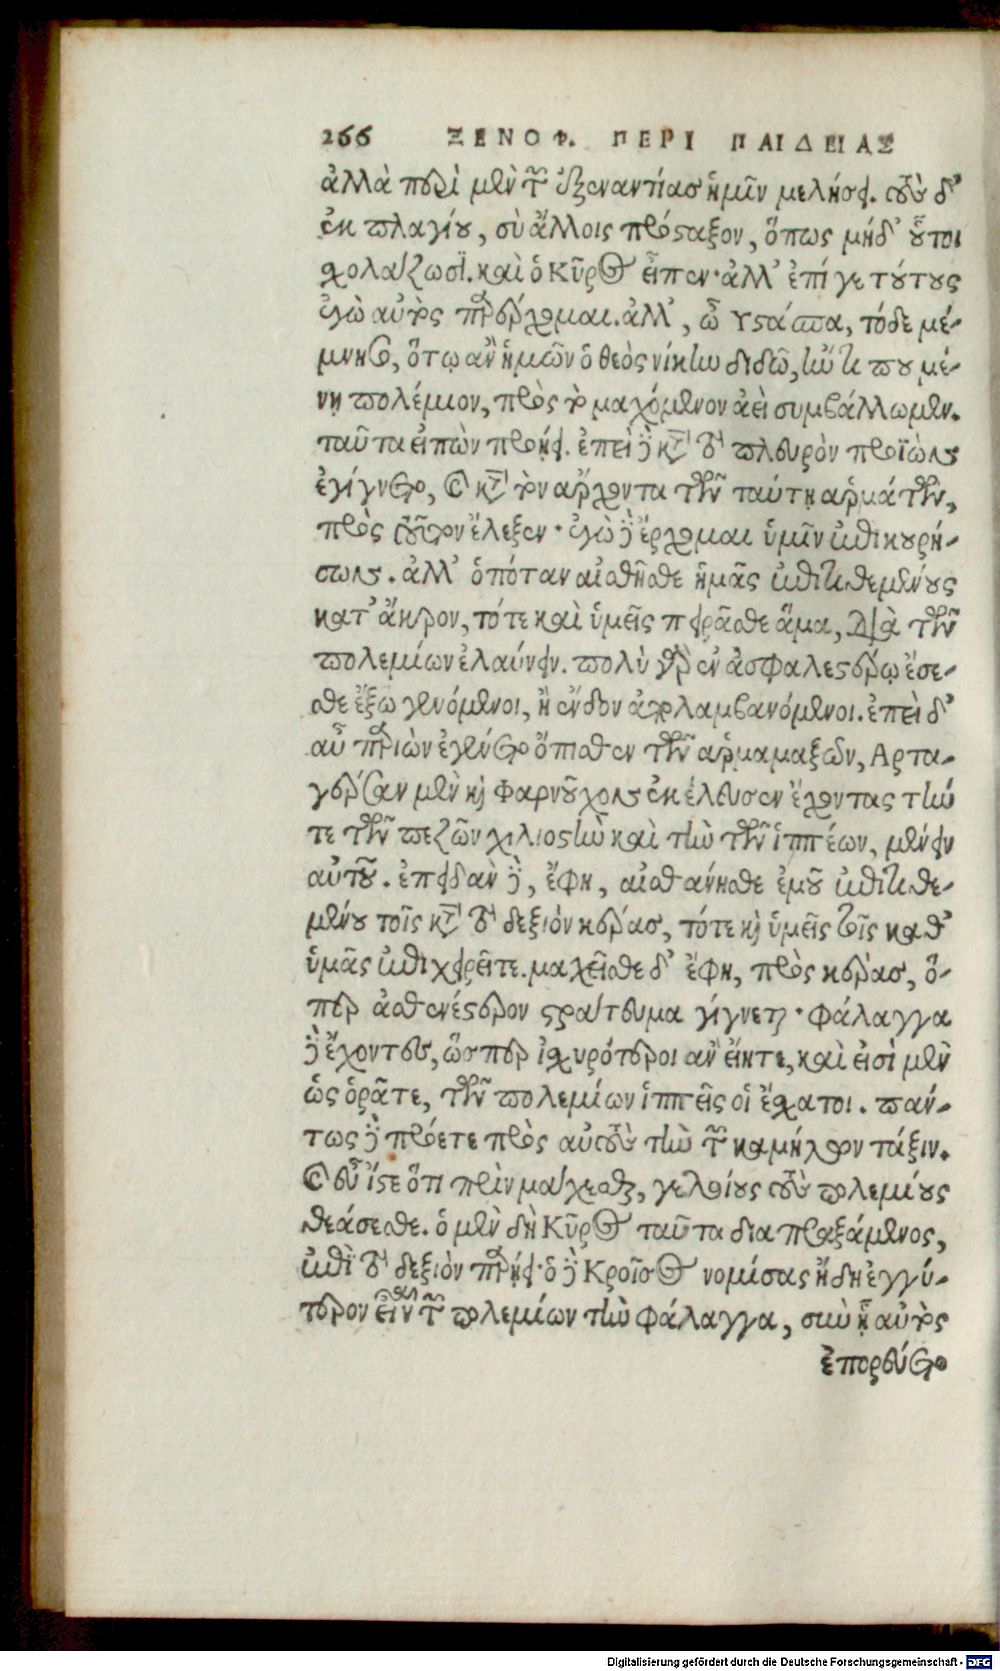 266 ΞΕΝΟΦ. ΠΕΡΙ ΠΑΙΔΕΙΑΣ
ἀλλὰ περὶ μὲν τῶν ἐξεναντίας ἡμῖν μελήσει. τοὺς δ᾽
ἐκ πλαγίου, σὺ ἄλλοις πρόσταξον, ὅπως μήδ᾽ οὗτοι
σχολάζωσι. καὶ ὁ Κῦρος εἶπεν· ἀλλ᾽ ἐπί γε τούτους
ἐγὼ αὐτὸς παρέρχομαι. ἀλλ᾽, ὦ Ὑστάσπα, τόδε μέ-
μνησο, ὅτῳ ἂν ἡμῶν ὁ θεὸς νίκην διδῷ, ἤν τι που μέ-
νῃ πολέμιον, πρὸς τὸ μαχόμενον ἀεὶ συμβάλλωμεν.
ταῦτα εἰπὼν προῄει. ἐπεὶ δὲ κατὰ τὸ πλευρὸν προϊὼν
ἐγίγνετο, καὶ κατὰ τὸν ἄρχοντα τῶν ταύτῃ ἁρμάτων,
πρὸς τοῦτον ἔλεξεν· ἐγὼ δὲ ἔρχομαι ὑμῖν ἐπικουρή-
σων. ἀλλ᾽ ὁπόταν αἴσθησθε ἡμᾶς ἐπιτιθεμένους
κατ᾽ ἄκρον, τότε καὶ ὑμεῖς πειρᾶσθε ἅμα, διὰ τῶν
πολεμίων ἐλαύνειν. πολὺ γὰρ ἐν ἀσφαλεστέρῳ ἔσε-
σθε ἔξω γενόμενοι, ἢ ἔνδον ἀπολαμβανόμενοι. ἐπεὶ δ᾽
αὖ παριὼν ἐγένετο ὄπισθεν τῶν ἁρμαμαξῶν, Ἀρτα-
γέρσαν μὲν καὶ Φαρνοῦχον ἐκέλευσεν ἔχοντας τήν
τε τῶν πεζῶν χιλιοστὺν καὶ τὴν τῶν ἱππέων, μένειν
αὐτοῦ. ἐπειδὰν δὲ, ἔφη, αἰσθάνησθε ἐμοῦ ἐπιτιθε-
μένου τοῖς κατὰ τὸ δεξιὸν κέρας, τότε καὶ ὑμεῖς τοῖς καθ᾽
ὑμᾶς ἐπιχειρεῖτε. μαχεῖσθε δ᾽ ἔφη, πρὸς κέρας, ὅ-
περ ἀσθενέστερον στράτευμα γίγνεται· φάλαγγα
δὲ ἔχοντες, ὥσπερ ἰσχυρότεροι ἂν εἴητε, καὶ εἰσὶ μὲν
ὡς ὁρᾶτε, τῶν πολεμίων ἱππεῖς οἱ ἔσχατοι. πάν-
τως δὲ πρόετε πρὸς αὐτοὺς τὴν τῶν καμήλων τάξιν.
καὶ εὖ ἴστε ὅτι πρὶν μάχεσθαι, γελοίους τοὺς πολεμίους
θεάσεσθε. ὁ μὲν δὴ Κῦρος ταῦτα διαπραξάμενος,
ἐπὶ τὸ δεξιὸν παρῄει· ὁ δὲ Κροῖσος νομίσας ἤδη ἐγγύ-
τερον εἶναι τῶν πολεμίων τὴν φάλαγγα, σὺν ᾗ αὐτὸς
ἐπορεύετο
Digitalisierung gefördert durch die Deutsche Forschungsgemeinschaft - DFG